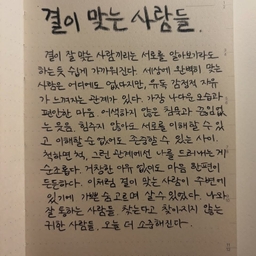 결이 맞는 사람들.
결이 잘 맞는 사람끼리는 서로를 알아보기라도
하는 듯 쉽게 가까워진다. 세상에 완벽히 맞는
사람은 어디에도 없다지만, 유독 감정적 자유
가 느껴지는 관계가 있다. 가장 나다운 모습과
편안한 마음. 어색하지 않은 침묵과 끊임없
는 웃음. 힘주지 않아도 서로를 이해할 수 있
고 이해할 순 없어도 존중할 수 있는 사이.
척하면 척, 그런 관계에선 나를 드러내는 게
순조롭다. 거창한 이유 없이도 마음 한편이
든든하다. 이처럼 결이 맞는 사람이 주변에
있기에 가쁜 숨 고르며 살 수 있었다. 나와
잘 통하는 사람들. 찾는다고 찾아지지 않는
귀한 사람들. 오늘 더 소중해진다.